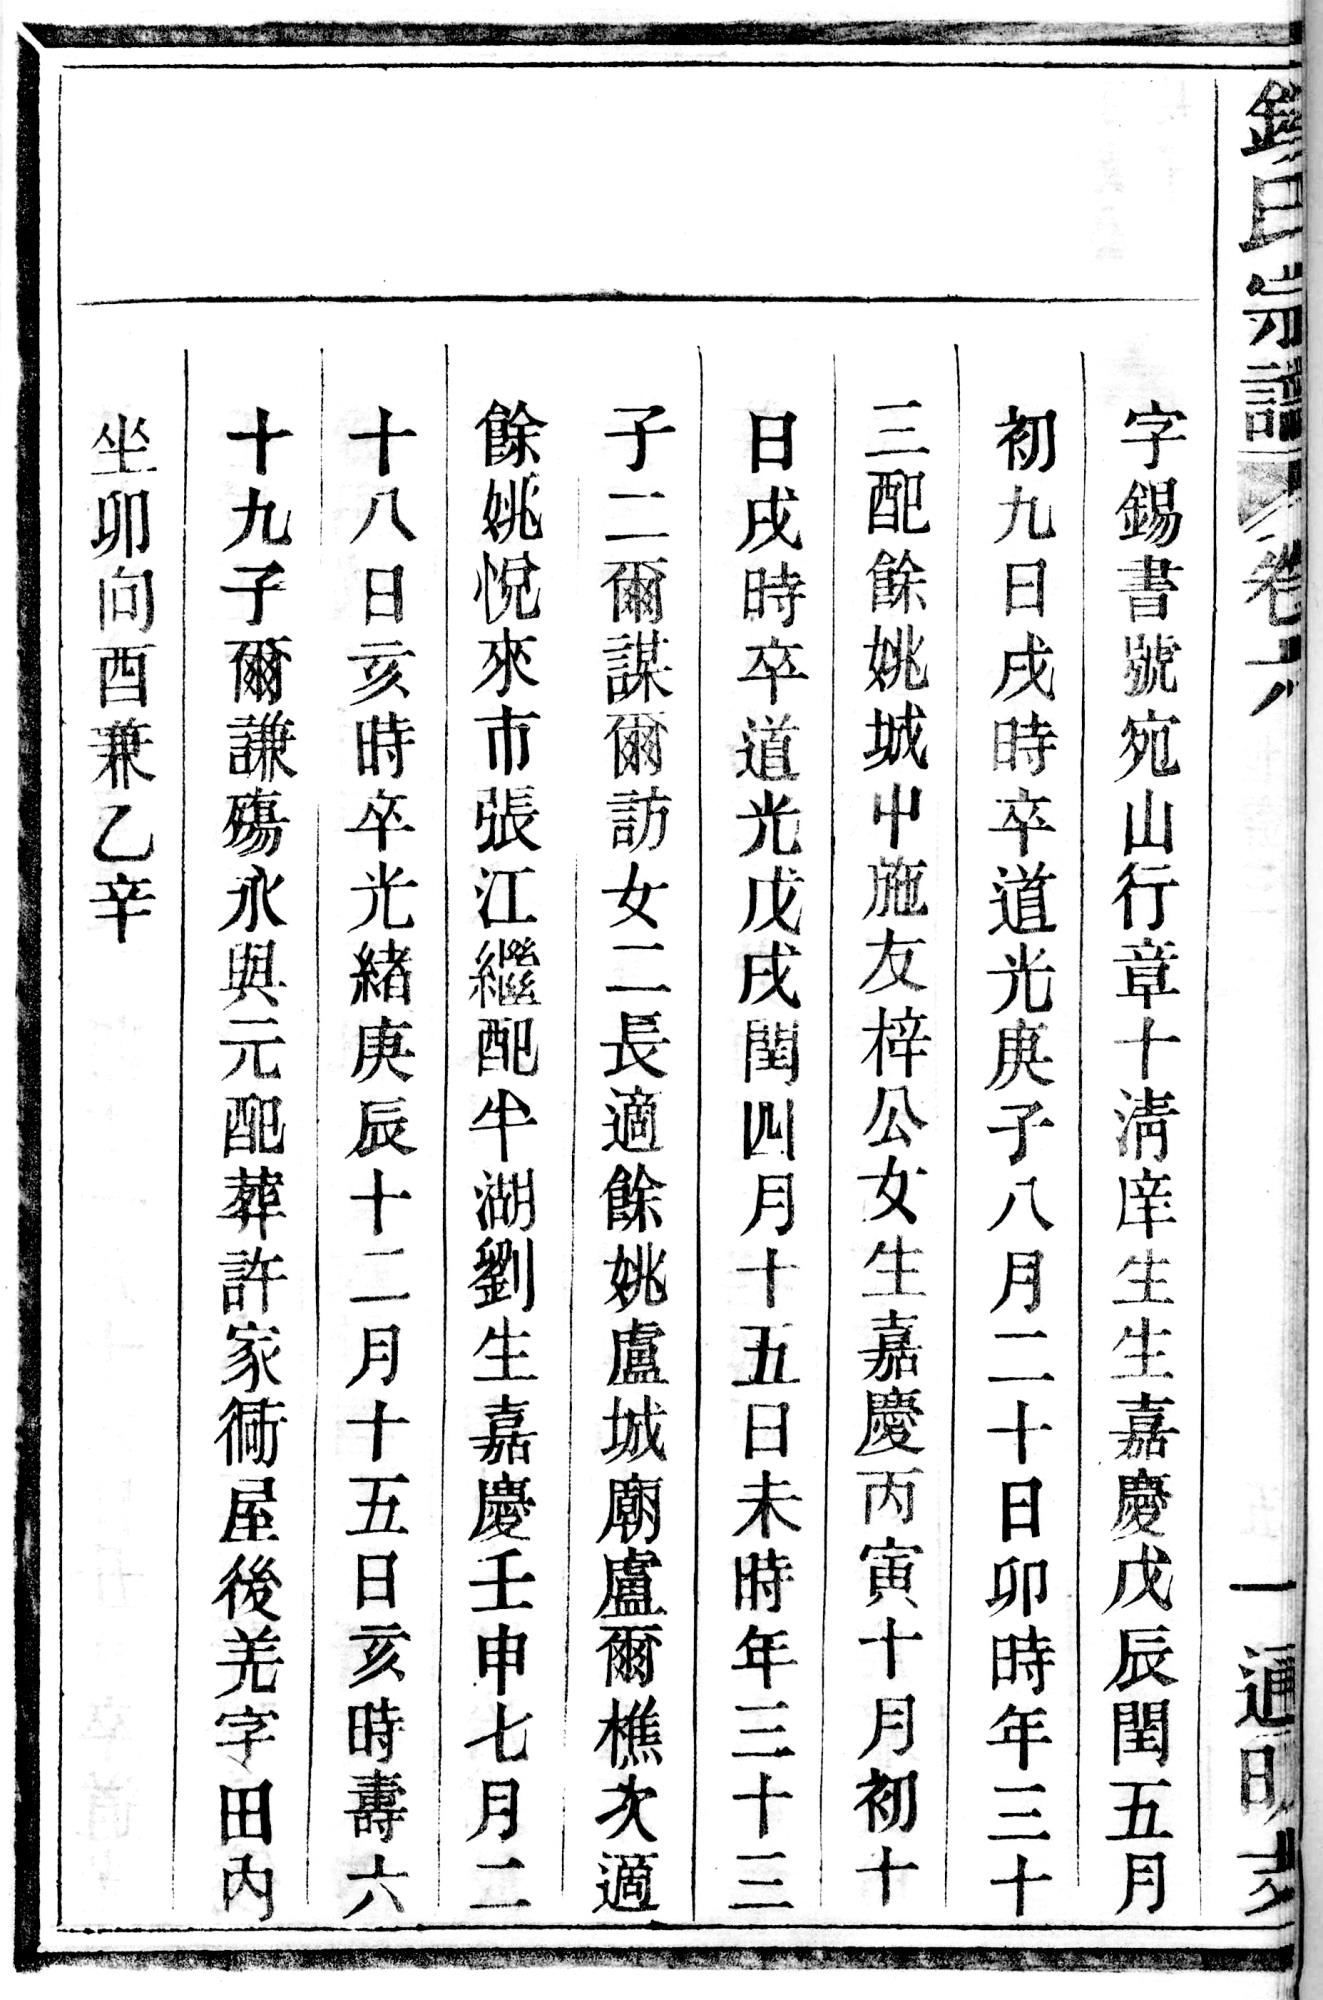 氏宗譜 卷六 一 通明
字錫書號宛山行章十清庠生生嘉慶戊辰閏五月
初九日戌時卒道光庚子八月二十日卯時年三十
三配餘姚城中施友梓公女生嘉慶丙寅十月初十
日戌時卒道光戊戌閏四月十五日未時年三十三
子二爾謀爾訪女二長適餘姚盧城廟盧爾樵次適
餘姚悅來市張江繼配牛湖劉生嘉慶壬申七月二
十八日亥時卒光緒庚辰十二月十五日亥時壽六
十九子爾謙殤永與元配葬許家衕屋後羌字田內
坐卯向酉兼乙辛